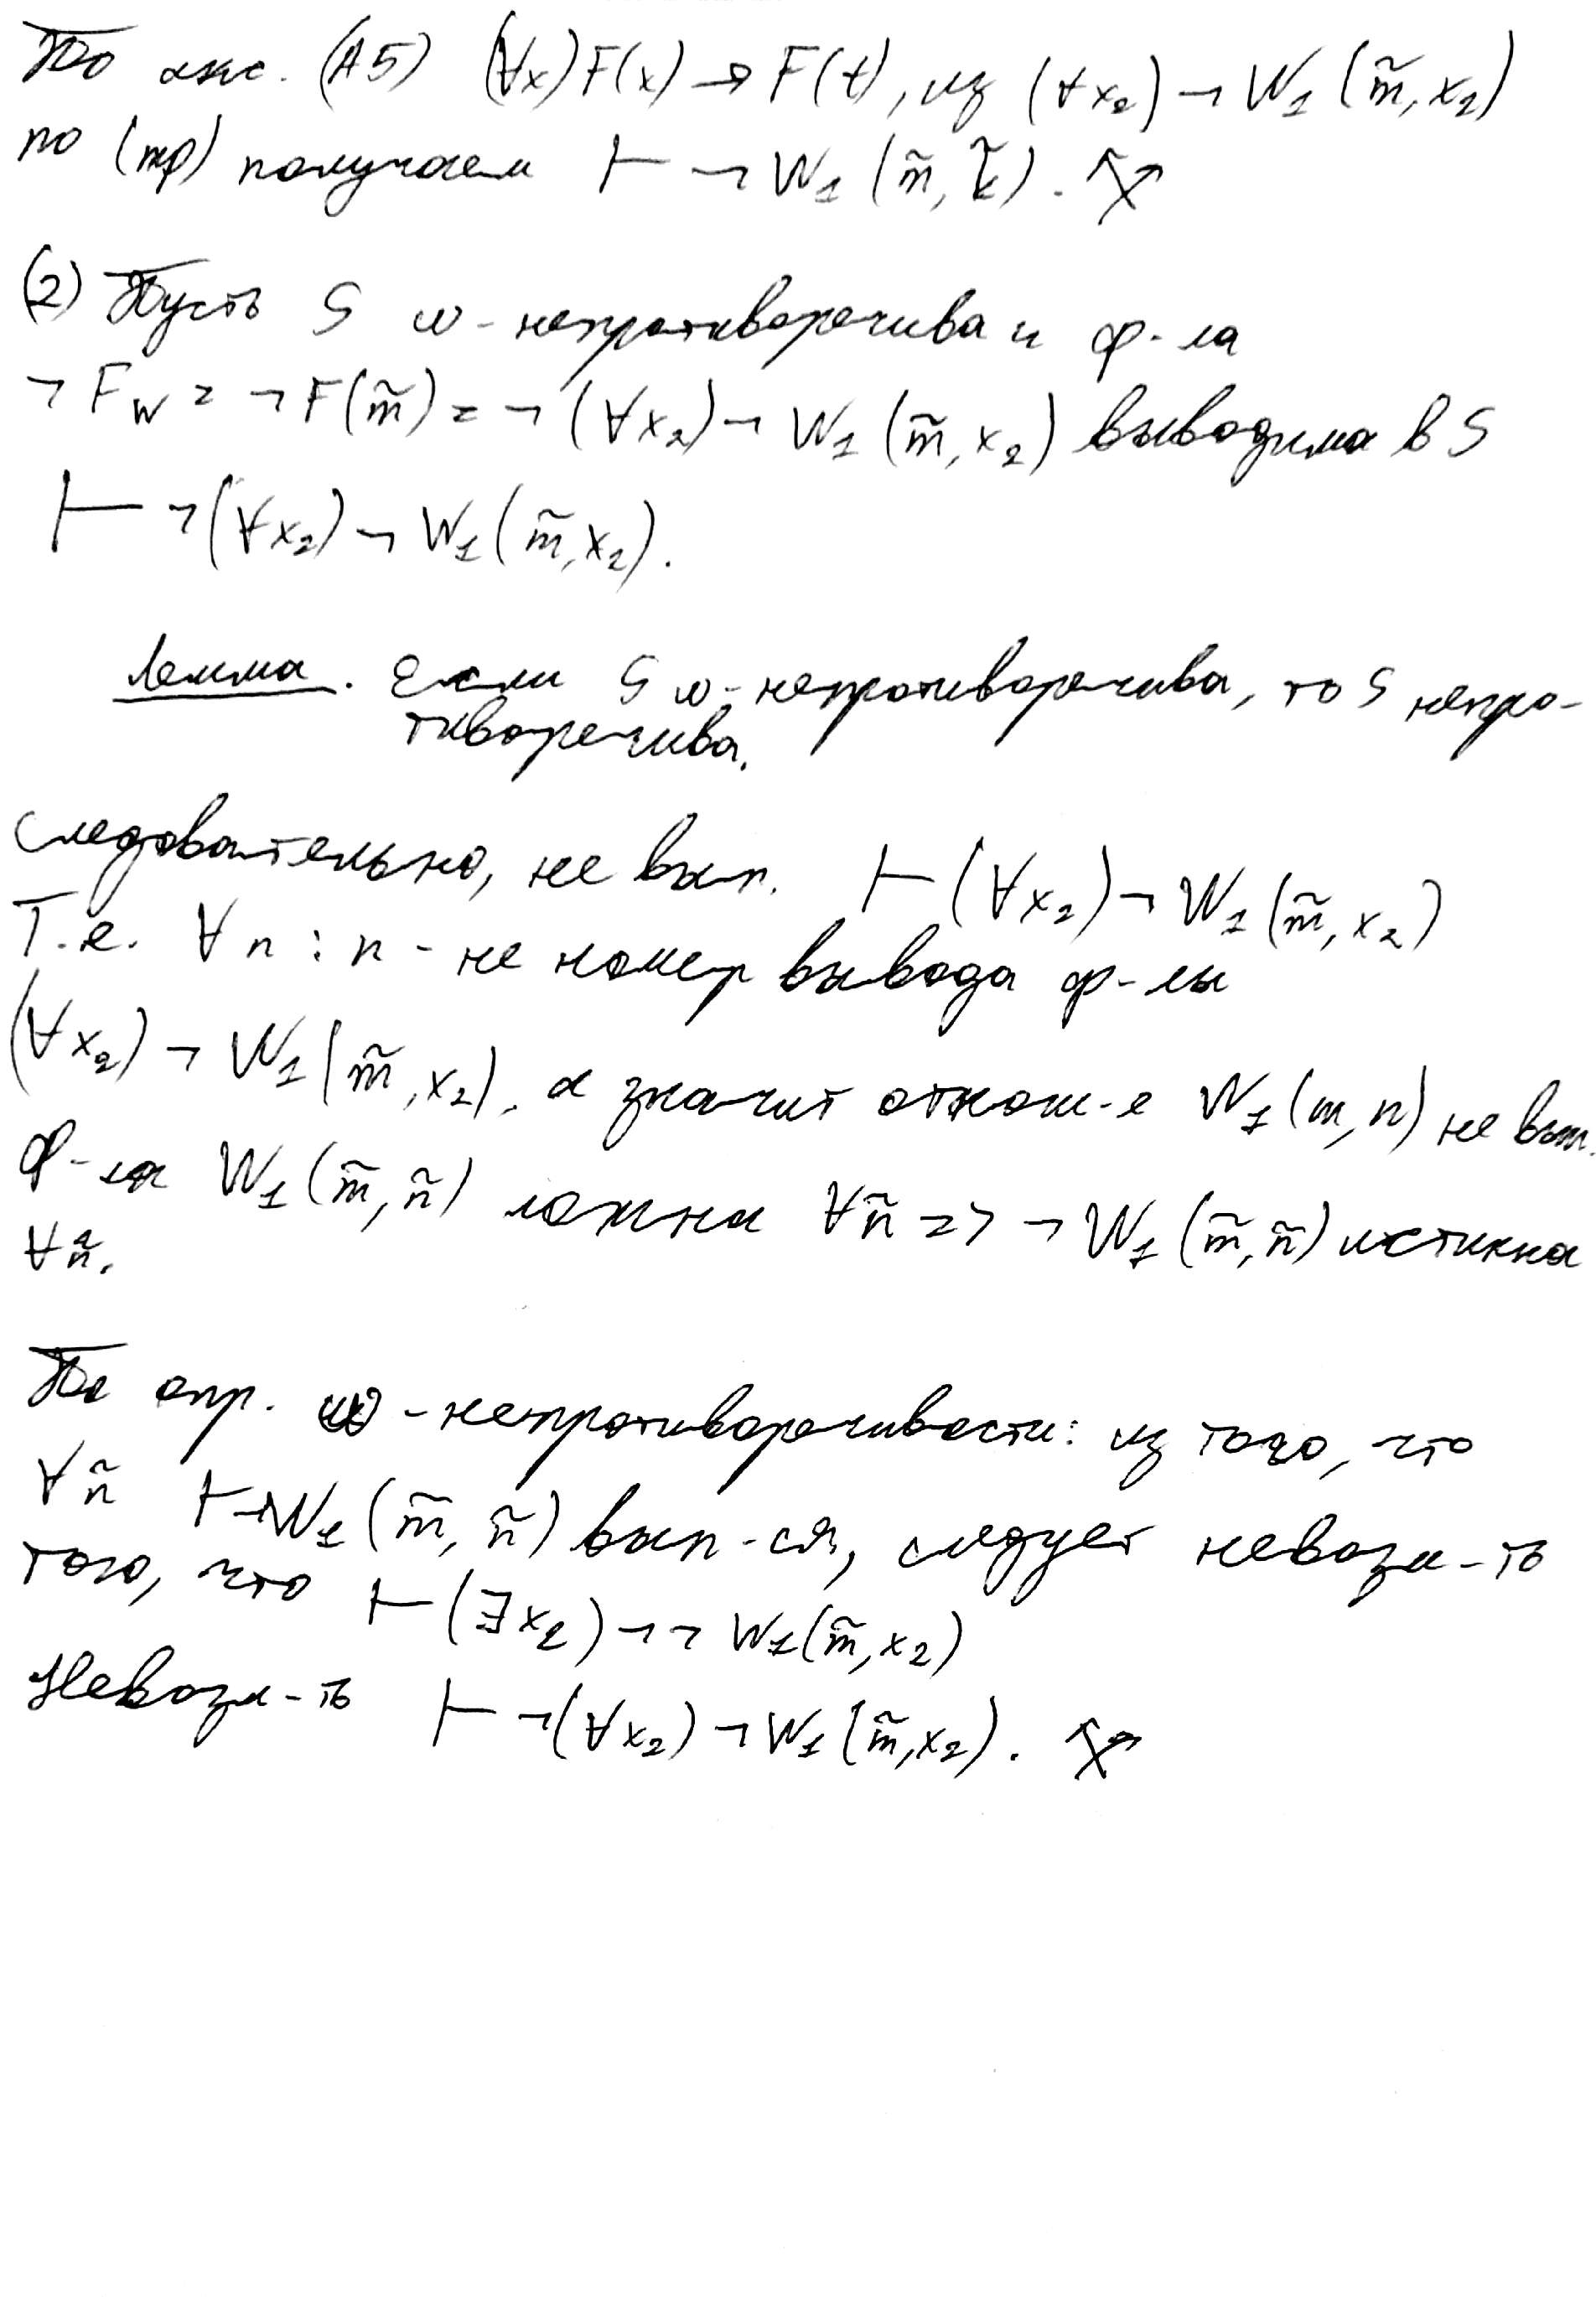 По акс. (A5) (∀x)F(x) → F(t), из (∀x₂) ¬ W₁ (m̃, x₂)
по (mp) получаем ⊢ ¬ W₁ (m̃, k̃).
(2) Пусть S ω-непротиворечива и ф-ла
¬ F_W = ¬ F(m̃) = ¬ (∀x₂) ¬ W₁ (m̃, x₂) выводима в S
⊢ ¬ (∀x₂) ¬ W₁ (m̃, x₂).
Лемма. Если S ω-непротиворечива, то S непро-
тиворечива.
Следовательно, не вып. ⊢ (∀x₂) ¬ W₁ (m̃, x₂)
Т.е. ∀n : n - не номер вывода ф-лы
(∀x₂) ¬ W₁ (m̃, x₂), а значит отнош-е W₁ (m, n) не вып.
Ф-ла W₁ (m̃, ñ) ложна ∀ñ => ¬ W₁ (m̃, ñ) истинна
∀ñ.
По опр. ω-непротиворечивости: из того, что
∀ñ ⊢ ¬W₁ (m̃, ñ) вып-ся, следует невозм-ть
того, что ⊢ (∃x₂) ¬ ¬ W₁ (m̃, x₂)
Невозм-ть ⊢ ¬ (∀x₂) ¬ W₁ (m̃, x₂).